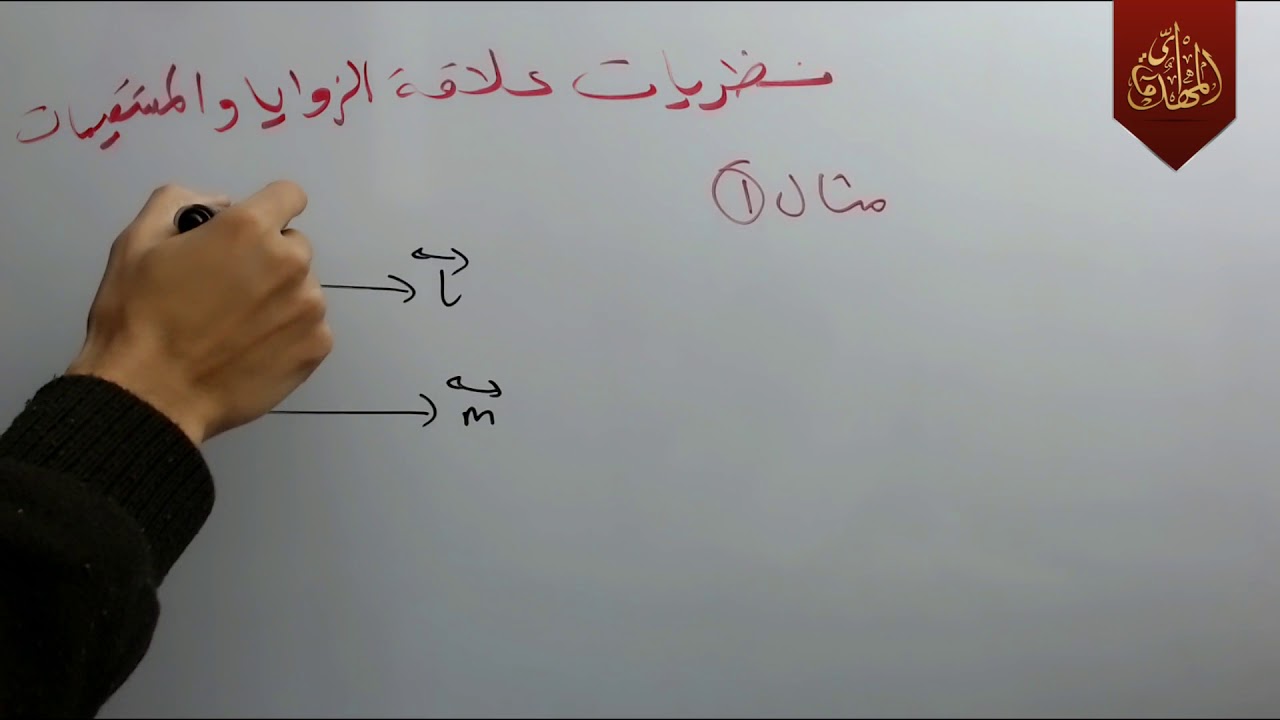 نظريات علاقة الزوايا والمستقيمات
مثال ①
l
m